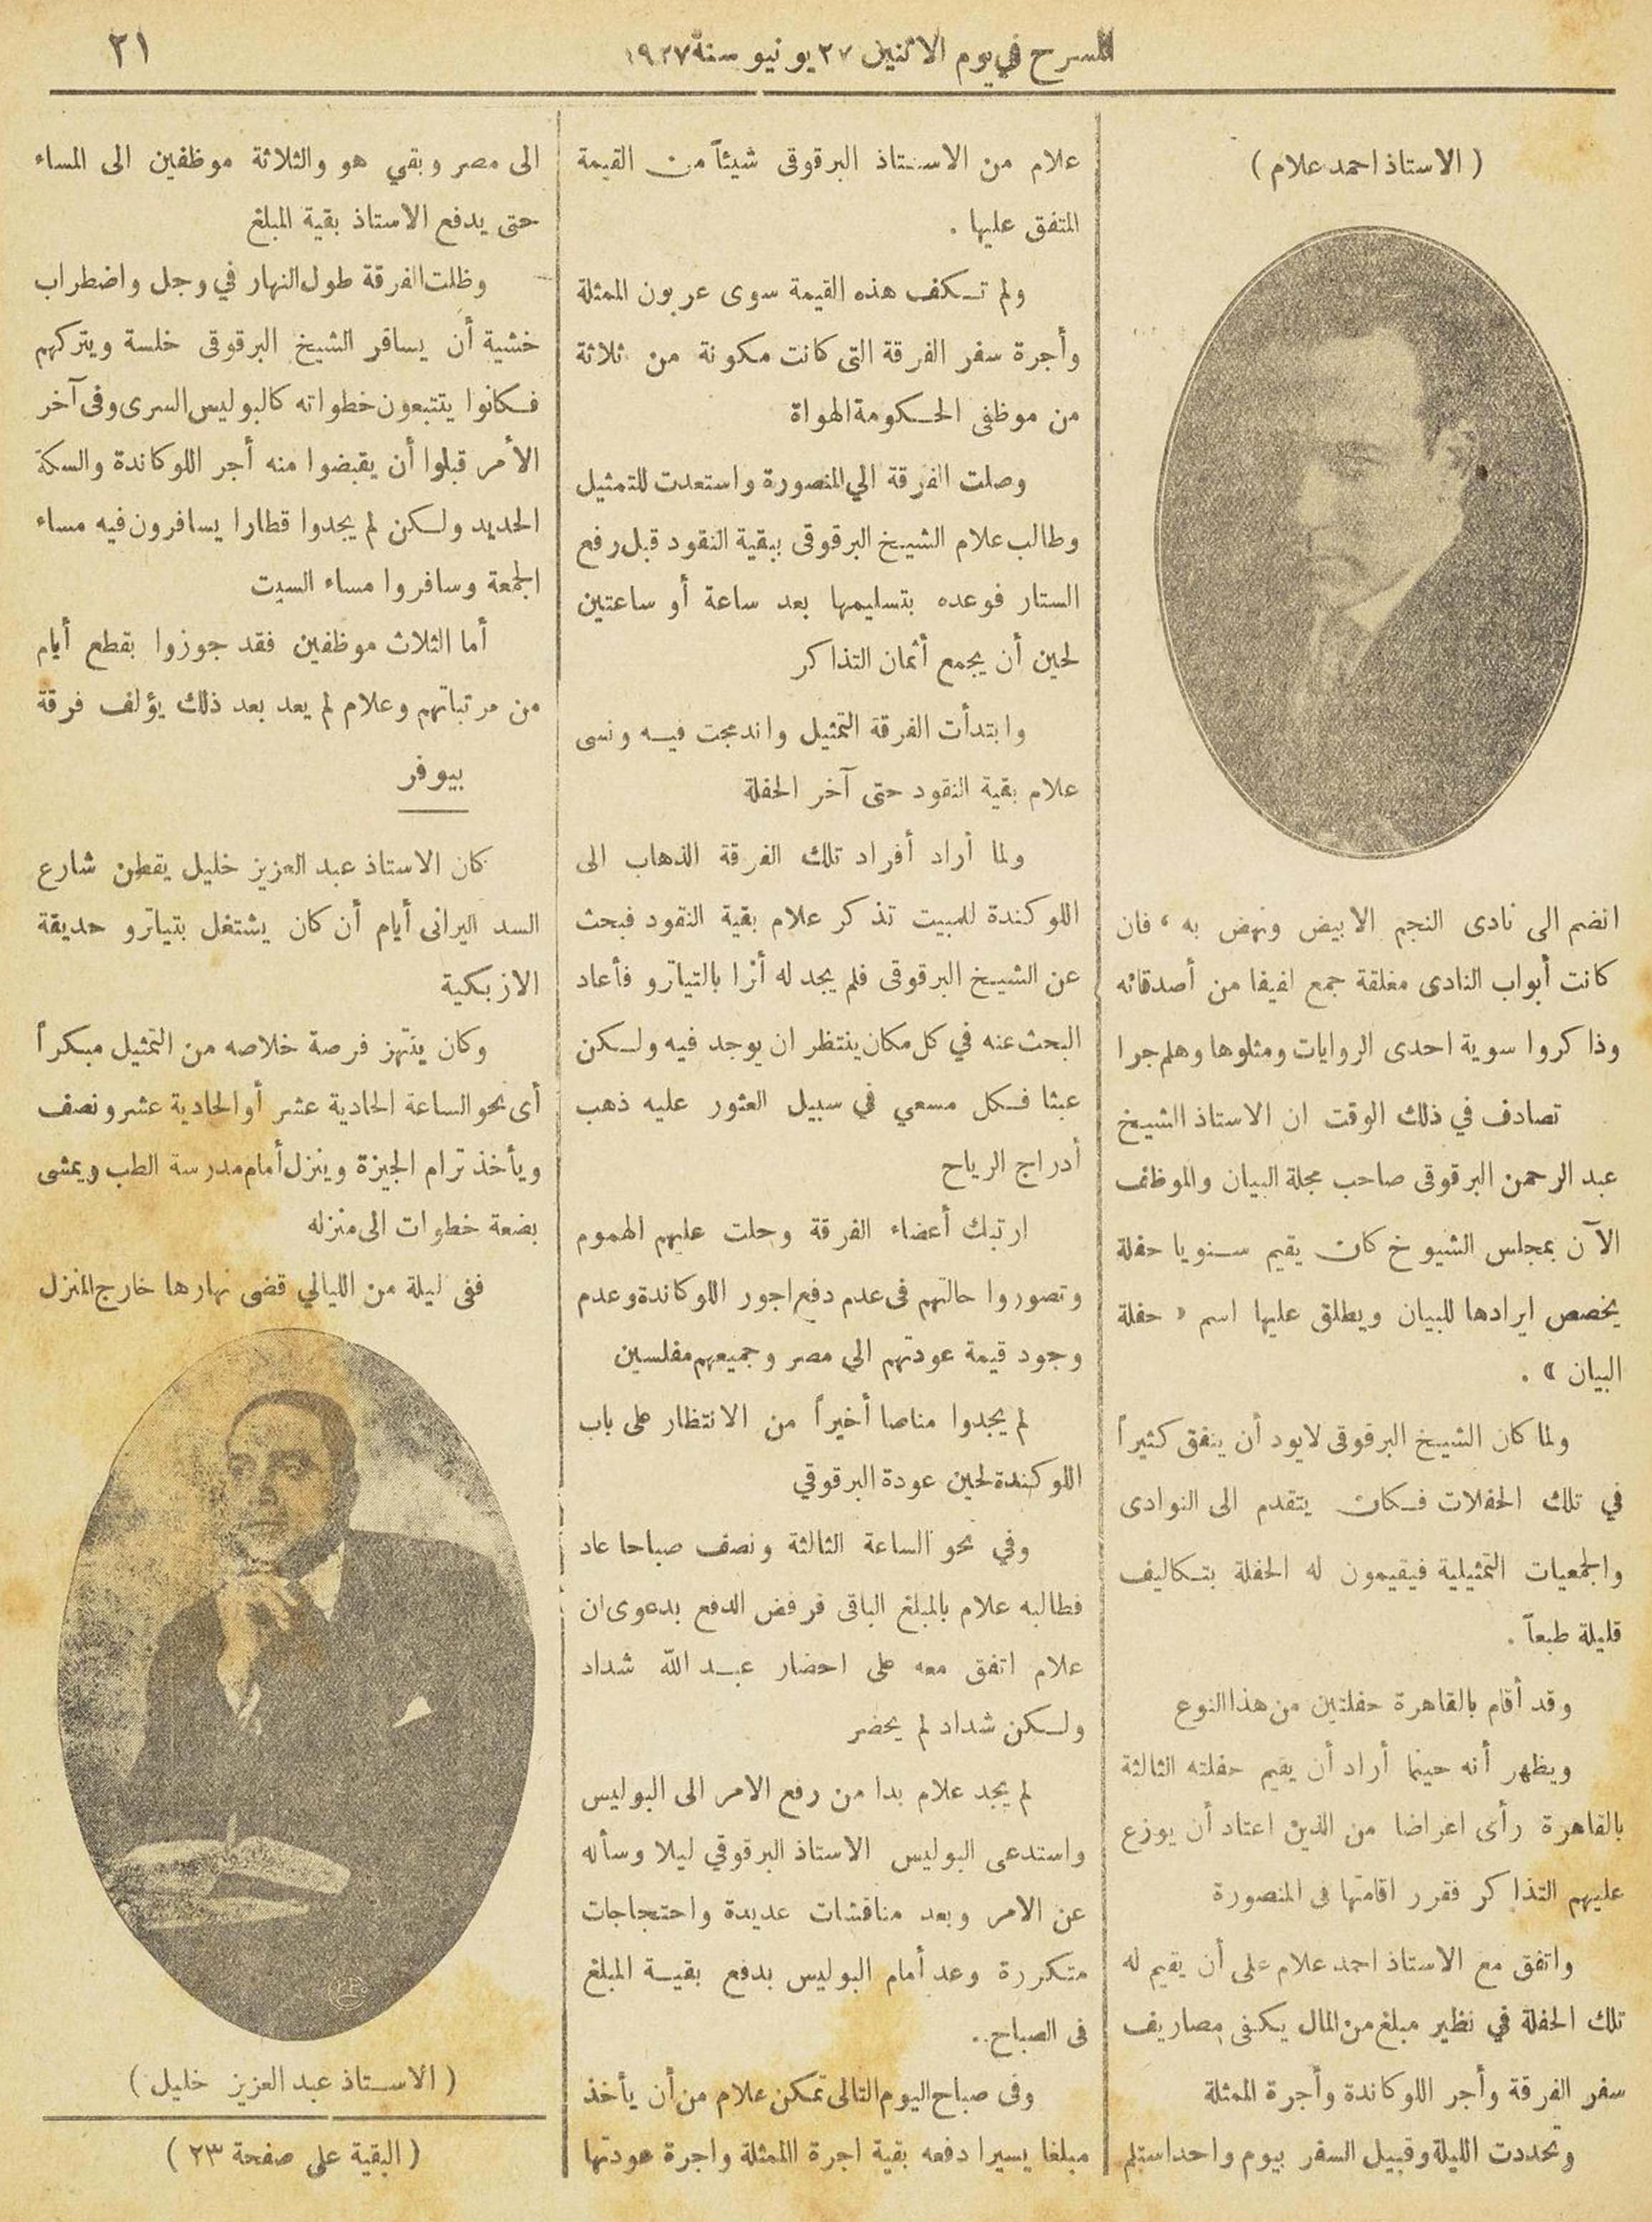 المسرح في يوم الاثنين ٢٧ يونيو سنة ١٩٢٧
٢١
( الاستاذ احمد علام )
انضم الى نادى النجم الابيض ونهض به ، فان
كانت أبواب النادى مغلقة جمع لفيفا من أصدقائه
وذاكروا سوية احدى الروايات ومثلوها وهلم جرا
تصادف في ذلك الوقت ان الاستاذ الشيخ
عبد الرحمن البرقوقى صاحب مجلة البيان والموظف
الآن بمجلس الشيوخ كان يقيم سنويا حفلة
يخصص ايرادها للبيان ويطلق عليها اسم « حفلة
البيان » .
ولما كان الشيخ البرقوقى لا يود أن ينفق كثيراً
في تلك الحفلات فكان يتقدم الى النوادى
والجمعيات التمثيلية فيقيمون له الحفلة بتكاليف
قليلة طبعاً .
وقد أقام بالقاهرة حفلتين من هذا النوع
ويظهر أنه حينما أراد أن يقيم حفلته الثالثة
بالقاهرة رأى اعراضا من الذين اعتاد أن يوزع
عليهم التذاكر فقرر اقامتها فى المنصورة
واتفق مع الاستاذ احمد علام على أن يقيم له
تلك الحفلة في نظير مبلغ من المال يكفى مصاريف
سفر الفرقة وأجر اللوكاندة وأجرة الممثلة
وتحددت الليلة وقبيل السفر بيوم واحد استلم
علام من الاستاذ البرقوقى شيئاً من القيمة
المتفق عليها .
ولم تكف هذه القيمة سوى عربون الممثلة
وأجرة سفر الفرقة التى كانت مكونة من ثلاثة
من موظفى الحكومة الهواة
وصلت الفرقة الي المنصورة واستعدت للتمثيل
وطالب علام الشيخ البرقوقى ببقية النقود قبل رفع
الستار فوعده بتسليمها بعد ساعة أو ساعتين
لحين أن يجمع أثمان التذاكر
وابتدأت الفرقة التمثيل واندمجت فيه ونسى
علام بقية النقود حتى آخر الحفلة
ولما أراد أفراد تلك الفرقة الذهاب الى
اللوكندة للمبيت تذكر علام بقية النقود فبحث
عن الشيخ البرقوقى فلم يجد له أثرا بالتياترو فأعاد
البحث عنه في كل مكان ينتظر ان يوجد فيه ولكن
عبثا فكل مسعي في سبيل العثور عليه ذهب
أدراج الرياح
ارتبك أعضاء الفرقة وحلت عليهم الهموم
وتصوروا حالتهم فى عدم دفع اجور اللوكاندة وعدم
وجود قيمة عودتهم الى مصر وجميعهم مفلسين
لم يجدوا مناصا أخيراً من الانتظار على باب
اللوكندة لحين عودة البرقوقي
وفي نحو الساعة الثالثة ونصف صباحا عاد
فطالبه علام بالمبلغ الباقى فرفض الدفع بدعوى ان
علام اتفق معه على احضار عبد الله شداد
ولكن شداد لم يحضر
لم يجد علام بدا من رفع الامر الى البوليس
واستدعى البوليس الاستاذ البرقوقي ليلا وسأله
عن الامر وبعد مناقشات عديدة واحتجاجات
متكررة وعد أمام البوليس بدفع بقية المبلغ
فى الصباح..
وفى صباح اليوم التالى تمكن علام من أن يأخذ
مبلغا يسيرا دفعه بقية اجرة الممثلة واجرة عودتها
الى مصر وبقي هو والثلاثة موظفين الى المساء
حتى يدفع الاستاذ بقية المبلغ
وظلت الفرقة طول النهار في وجل واضطراب
خشية أن يسافر الشيخ البرقوقى خلسة ويتركهم
فكانوا يتتبعون خطواته كالبوليس السرى وفى آخر
الأمر قبلوا أن يقبضوا منه أجر اللوكاندة والسكة
الحديد ولكن لم يجدوا قطارا يسافرون فيه مساء
الجمعة وسافروا مساء السبت
أما الثلاث موظفين فقد جوزوا بقطع أيام
من مرتباتهم وعلام لم يعد بعد ذلك يؤلف فرقة
بيوفر
كان الاستاذ عبد العزيز خليل يقطن شارع
السد البرانى أيام أن كان يشتغل بتياترو حديقة
الازبكية
وكان ينتهز فرصة خلاصه من التمثيل مبكراً
أى نحو الساعة الحادية عشر أو الحادية عشر ونصف
ويأخذ ترام الجيزة وينزل أمام مدرسة الطب ويمشى
بضعة خطوات الى منزله
ففى ليلة من الليالي قضى نهارها خارج المنزل
( الاستاذ عبد العزيز خليل )
( البقية على صفحة ٢٣ )